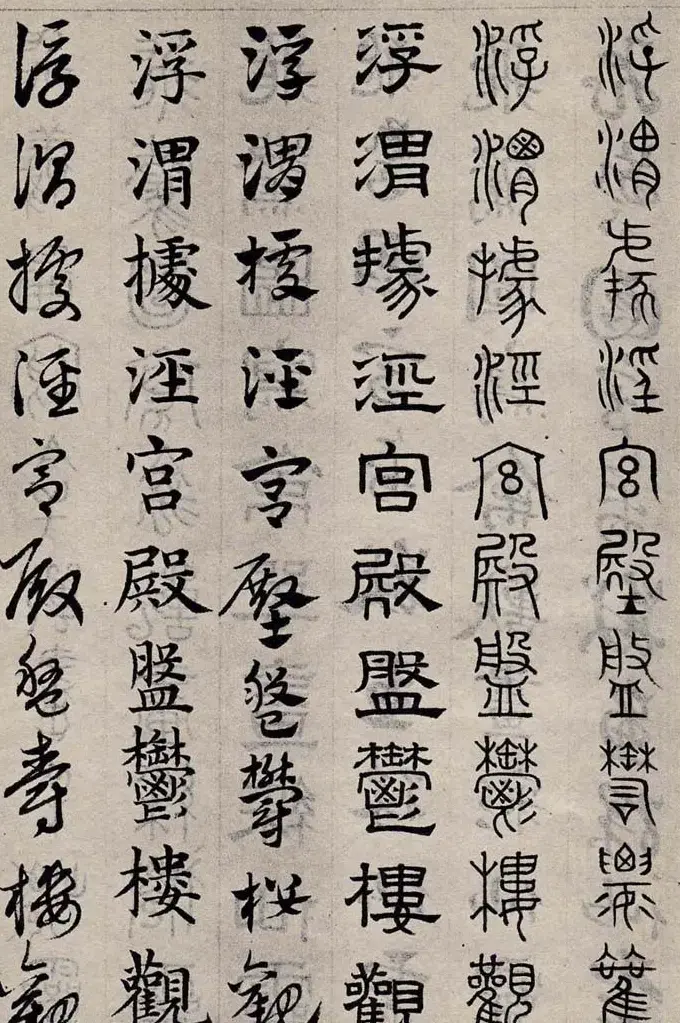 浮渭據涇宮殿盤鬱樓觀
浮渭據涇宮殿盤鬱樓觀
浮渭據涇宮殿盤鬱樓觀
浮渭據涇宮殿盤鬱樓觀
浮渭據涇宮殿盤鬱樓觀
浮渭據涇宮殿盤鬱樓觀